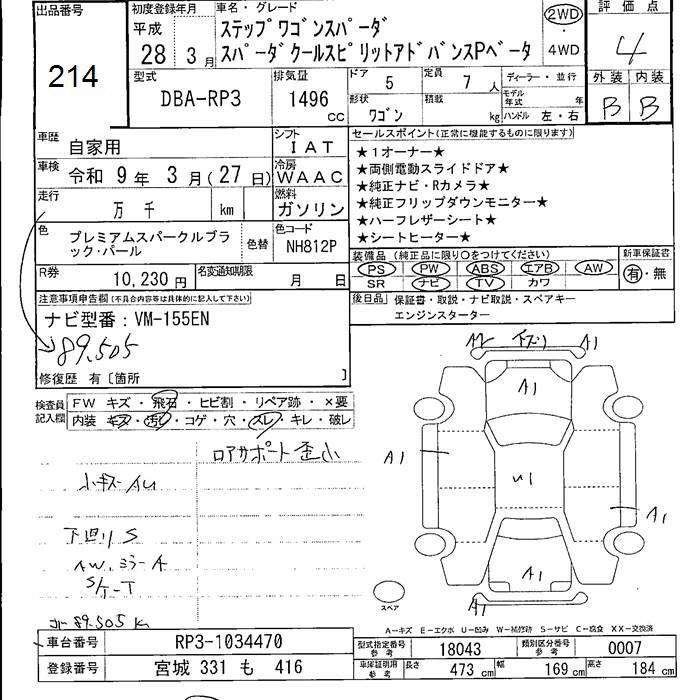 出品番号
214
初度登録年月
平成
28 年 3 月
車名・グレード
ステップワゴンスパーダ
スパーダクールスピリットアドバンスPベータ
2WD
・
4WD
評価点
4
外装 内装
B B
型式
DBA-RP3
排気量
1496
CC
ドア
5
定員
7 人
形状
ワゴン
積載
kg
ディーラー・並行
モデル
年式
年
ハンドル 左・右
車歴
自家用
シフト
IAT
車検
令和 9 年 3 月 (27 日)
冷房
WAAC
走行
万 千 km
燃料
ガソリン
色
プレミアムスパークルブラ
ック・パール
色替
色コード
NH812P
R券
10,230 円
名変通知期限
月 日
セールスポイント(正常に機能するものに限ります)
★1オーナー★
★両側電動スライドドア★
★純正ナビ・Rカメラ★
★純正フリップダウンモニター★
★ハーフレザーシート★
★シートヒーター★
装備品 (純正品に限り○をつけてください)
PS PW ABS エアB AW
SR ナビ TV カワ
新車保証書
有・無
後日品
保証書・取説・ナビ取説・スペアキー
エンジンスターター
注意事項申告欄(不具合内容等は具体的に記入して下さい)
ナビ型番:VM-155EN
89,505
修復歴 有〔箇所 〕
検査員
記入欄
FW キズ・飛石・ヒビ割・リペア跡・×要
内装 キズ・汚レ・コゲ・穴・スレ・キレ・破レ
ロアサポート歪小
小キズAU
下回りS
AW.ミラーA
89,505 K
A2 A1
A1
A1
U1
A1
A1
A1
スペア
A-キズ E-エクボ U-凹み W-補修跡 S-サビ C-腐食 XX-交換済
車台番号
RP3-1034470
登録番号
宮城 331 も 416
型式指定番号
参考
18043
類別区分番号
参考
0007
車庫証明用
参考
長さ 473 cm
幅 169 cm
高さ 184 cm